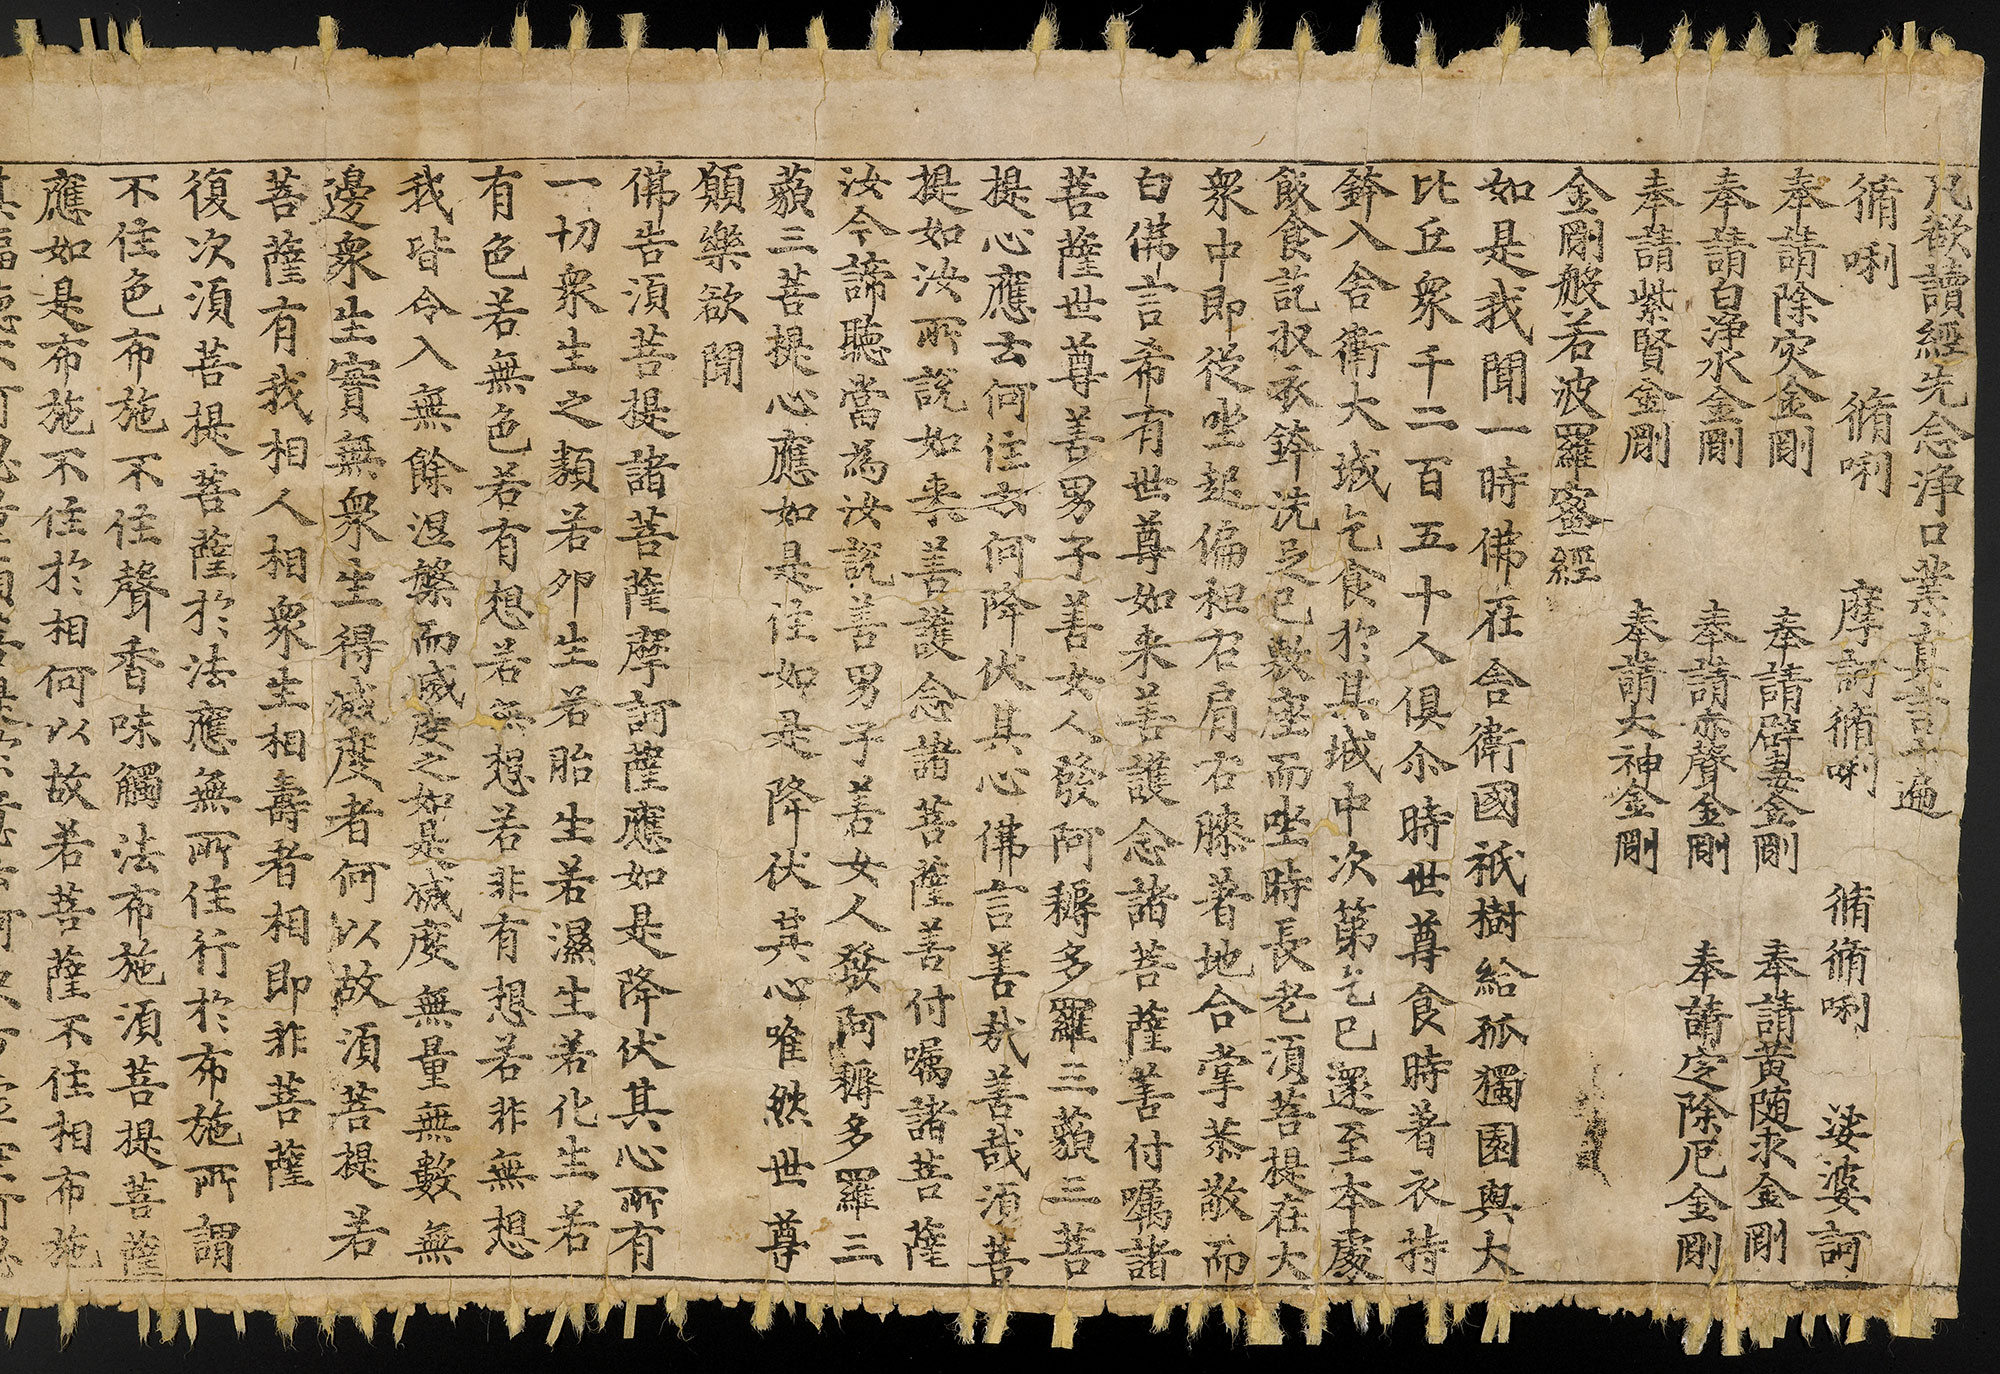 凡欲讀經先念淨口業真言一遍
脩唎 脩唎 摩訶脩唎 脩脩唎 娑婆訶
奉請除灾金剛 奉請辟毒金剛 奉請黄随求金剛
奉請白淨水金剛 奉請赤聲金剛 奉請定除厄金剛
奉請紫賢金剛 奉請大神金剛
金剛般若波羅蜜經
如是我聞一時佛在舍衛國祇樹給孤獨園與大
比丘衆千二百五十人俱尒時世尊食時著衣持
鉢入舍衛大城乞食於其城中次第乞已還至本處
飯食訖収衣鉢洗足已敷座而坐時長老湏菩提在大
衆中即從坐起偏袒右肩右膝著地合掌恭敬而
白佛言希有世尊如来善護念諸菩薩善付囑諸
菩薩世尊善男子善女人發阿耨多羅三藐三菩
提心應云何住云何降伏其心佛言善哉善哉湏菩
提如汝所說如来善護念諸菩薩善付囑諸菩薩
汝今諦聽當為汝說善男子善女人發阿耨多羅三
藐三菩提心應如是住如是降伏其心唯然世尊
願樂欲聞
佛告湏菩提諸菩薩摩訶薩應如是降伏其心所有
一切衆生之類若夘生若胎生若濕生若化生若
有色若無色若有想若無想若非有想若非無想
我皆令入無餘涅槃而滅度之如是滅度無量無數無
邊衆生實無衆生得滅度者何以故湏菩提若
菩薩有我相人相衆生相壽者相即非菩薩
復次湏菩提菩薩於法應無所住行於布施所謂
不住色布施不住聲香味觸法布施湏菩提菩薩
應如是布施不住於相何以故若菩薩不住相布施